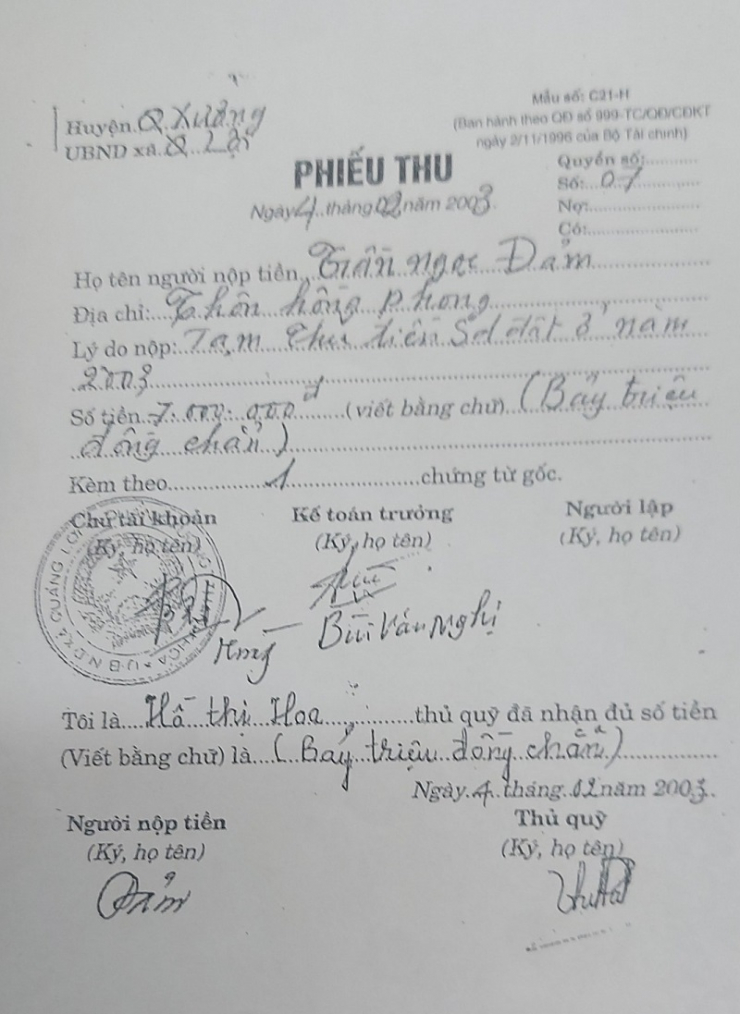 Huyện Q. Xương
UBND xã Q. Lợi
Mẫu số: C21-H
(Ban hành theo QĐ số 999-TC/QĐ/CĐKT
ngày 2/11/1996 của Bộ Tài chính)
PHIẾU THU
Ngày 4 tháng 02 năm 2003
Quyển số:..........
Số:...07..........
Nợ:..........
Có:..........
Họ tên người nộp tiền Trần ngọc Đảm
Địa chỉ: Thôn hồng phong
Lý do nộp: Tạm thu tiền Sd đất ở năm
2003
Số tiền 7.000.000đ (viết bằng chữ) (Bẩy triệu
đồng chẵn)
Kèm theo 1 chứng từ gốc.
Chủ tài khoản Kế toán trưởng Người lập
(Ký, họ tên) (Ký, họ tên) (Ký, họ tên)
Bùi Văn Nghị
Tôi là Hồ thị Hoa thủ quỹ đã nhận đủ số tiền
(Viết bằng chữ) là (Bảy triệu đồng chẵn)
Ngày 4 tháng 02 năm 2003.
Người nộp tiền Thủ quỹ
(Ký, họ tên) (Ký, họ tên)
Đảm